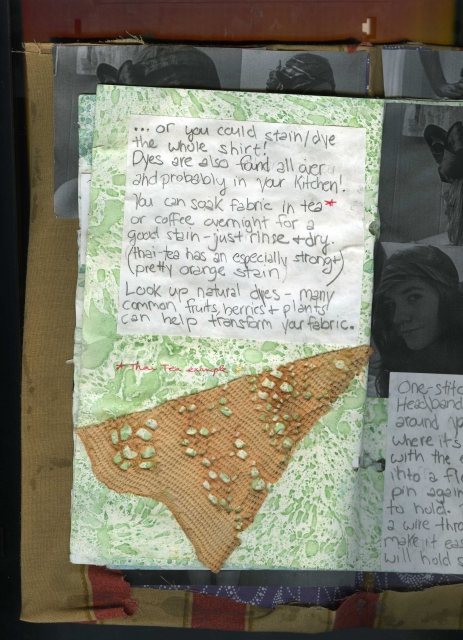 ... or you could stain/dye
the whole shirt!
Dyes are also found all over
and probably in your kitchen!
You can soak fabric in tea*
or coffee overnight for a
good stain - just rinse + dry.
(thai tea has an especially strong +)
(pretty orange stain)
Look up natural dyes - many
common fruits, berries + plants
can help transform your fabric.
* Thai Tea example
One-stitc
Headband
around yo
where it's
with the e
into a fl
pin again
to hold.
a wire thro
make it eas
will hold s